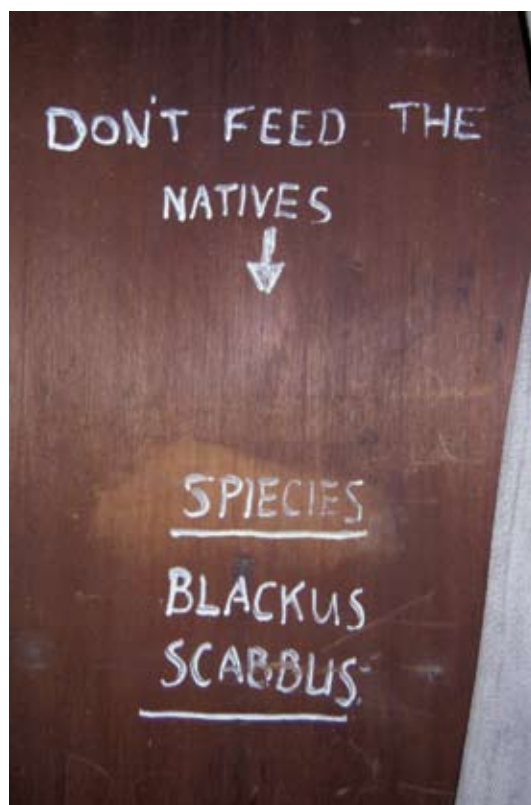 DON'T FEED THE
NATIVES
SPIECIES
BLACKUS
SCABBUS